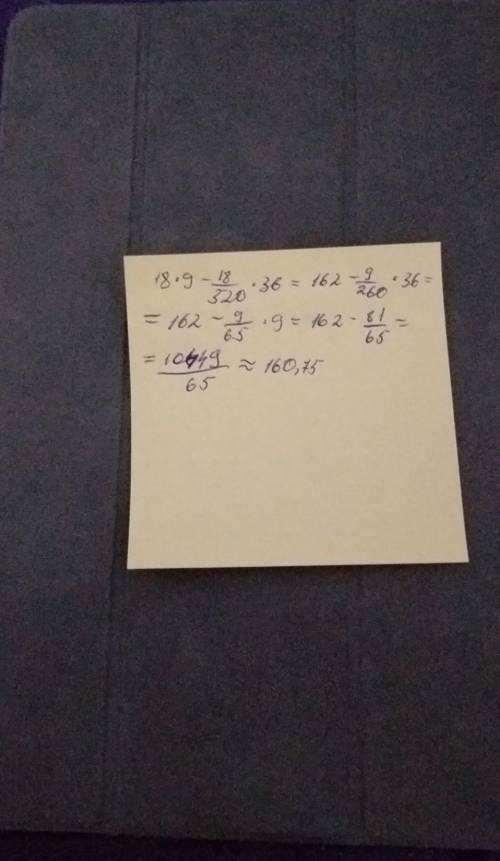 18·9 - 18/320 · 36 = 162 - 9/260 · 36 =
= 162 - 9/65 · 9 = 162 - 81/65 =
= 10449/65 ≈ 160,75